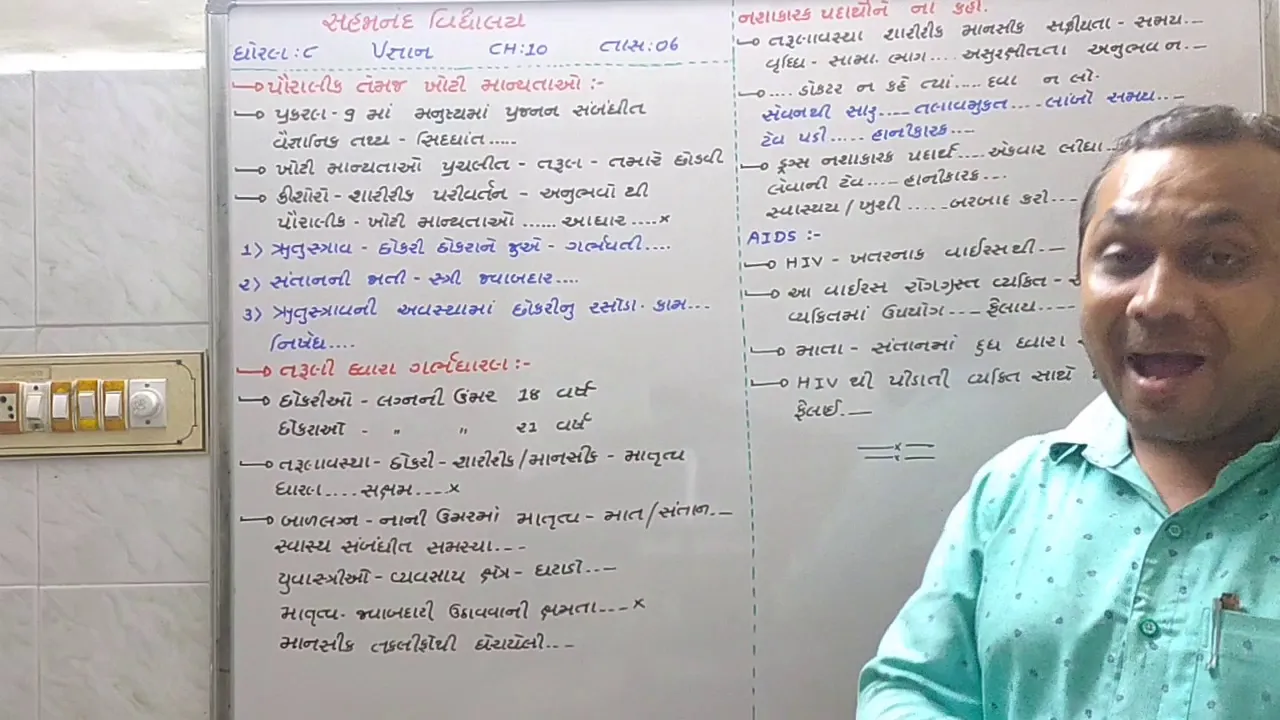 સહજાનંદ વિદ્યાલય
ધોરણ : ૮ વિજ્ઞાન CH:10 તાસ:06
પૌરાણીક તેમજ ખોટી માન્યતાઓ :-
પ્રકરણ - ૧ માં મનુષ્યમાં પ્રજનન સંબંધીત
વૈજ્ઞાનિક તથ્ય - સિદ્ધાંત.....
ખોટી માન્યતાઓ પ્રચલીત - તરૂણ - તમારે છોડવી
કીશોરો - શારીરીક પરીવર્તન - અનુભવો થી
પૌરાણીક - ખોટી માન્યતાઓ ...... આધાર ....×
૧) ઋતુસ્ત્રાવ - છોકરી છોકરાને જુએ - ગર્ભવતી....
૨) સંતાનની જાતી - સ્ત્રી જ્વાબદાર....
૩) ઋતુસ્ત્રાવની અવસ્થામાં છોકરીનુ રસોડા. કામ...
નિષેધ....
તરૂણી દ્વારા ગર્ભધારણ :-
છોકરીઓ - લગ્નની ઉંમર 18 વર્ષ
છોકરાઓ - " " ૨૧ વર્ષ
તરૂણાવસ્થા - છોકરી - શારીરીક/માનસીક - માતૃત્વ
ધારણ .... સક્ષમ ....×
બાળલગ્ન - નાની ઉમરમાં માતૃત્વ - માત/સંતાન...
સ્વાસ્ય સંબંધીત સમસ્યા...
યુવાસ્ત્રીઓ - વ્યવસાય ક્ષેત્ર - ઘટાડો...
માતૃત્વ - જ્વાબદારી ઉઠાવવાની ક્ષમતા....×
માનસીક તકલીફોથી ઘેરાયેલી...
નશાકારક પદાર્થોને ના કહો.
તરૂણાવસ્થા શારીરીક માનસીક સક્રીયતા - સમય...
વૃધ્ધિ - સામા. ભાગ .... અસુરક્ષીતતા અનુભવ ન...
.... ડોકટર ન કહે ત્યાં.... દવા ન લો.
સેવનથી સારુ.... તણાવમુકત.... લાંબો સમય...
ટેવ પડી..... હાનીકારક...
ડ્રગ્સ નશાકારક પદાર્થ.... એકવાર લીધા..
લેવાની ટેવ.... હાનીકારક....
સ્વાસ્થય / ખુશી ..... બરબાદ કરો...
AIDS :-
HIV - ખતરનાક વાઈરસથી...
આ વાઇરસ રોગગ્રસ્ત વ્યકિત -
વ્યકિતમાં ઉપયોગ .... ફેલાય...
માતા - સંતાનમાં દુધ ધ્વારા
HIV થી પીડાતી વ્યક્તિ સાથે
ફેલાઈ...